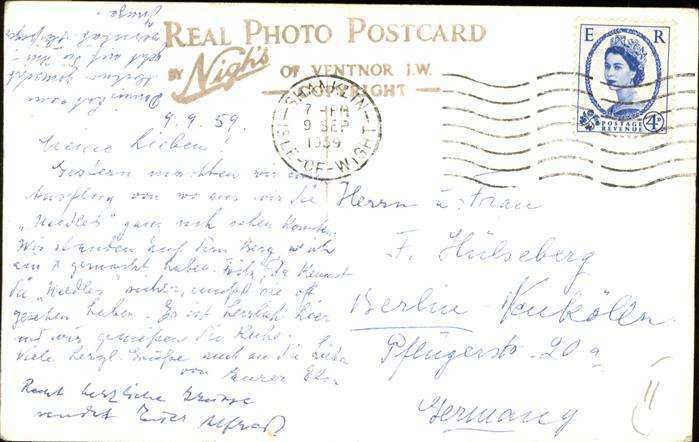 REAL PHOTO POSTCARD
BY Nigh's OF VENTNOR I.W.
COPYRIGHT
E R
POSTAGE REVENUE 4D
SHANKLIN
7 PM
9 SEP
1959
ISLE-OF-WIGHT
9.9.59.
Meine Lieben!
Gestern machten wir einen
Ausflug von wo aus wir die
"Needles" ganz nah sehen konnten.
Wir standen auf dem Berg wo ich
ein X gemacht habe. Fritz, Du kennst
die "Needles" sicher, sie oft
gesehen haben. Es ist herrlich hier
und wir genießen die Ruhe.
Viele herzl. Grüße auch an die Lieben
von Eurer Else
Recht herzliche Grüsse
sendet Euer Alfred
Herrn u. Frau
F. Hülseberg
Berlin-Neukölln
Pflügerstr. 20a
Germany